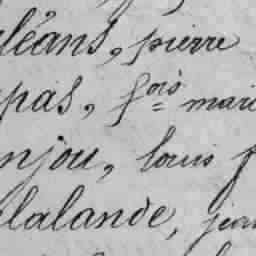 léans, pierre
pas, f.ois mari
njou, louis f
lalande, jean